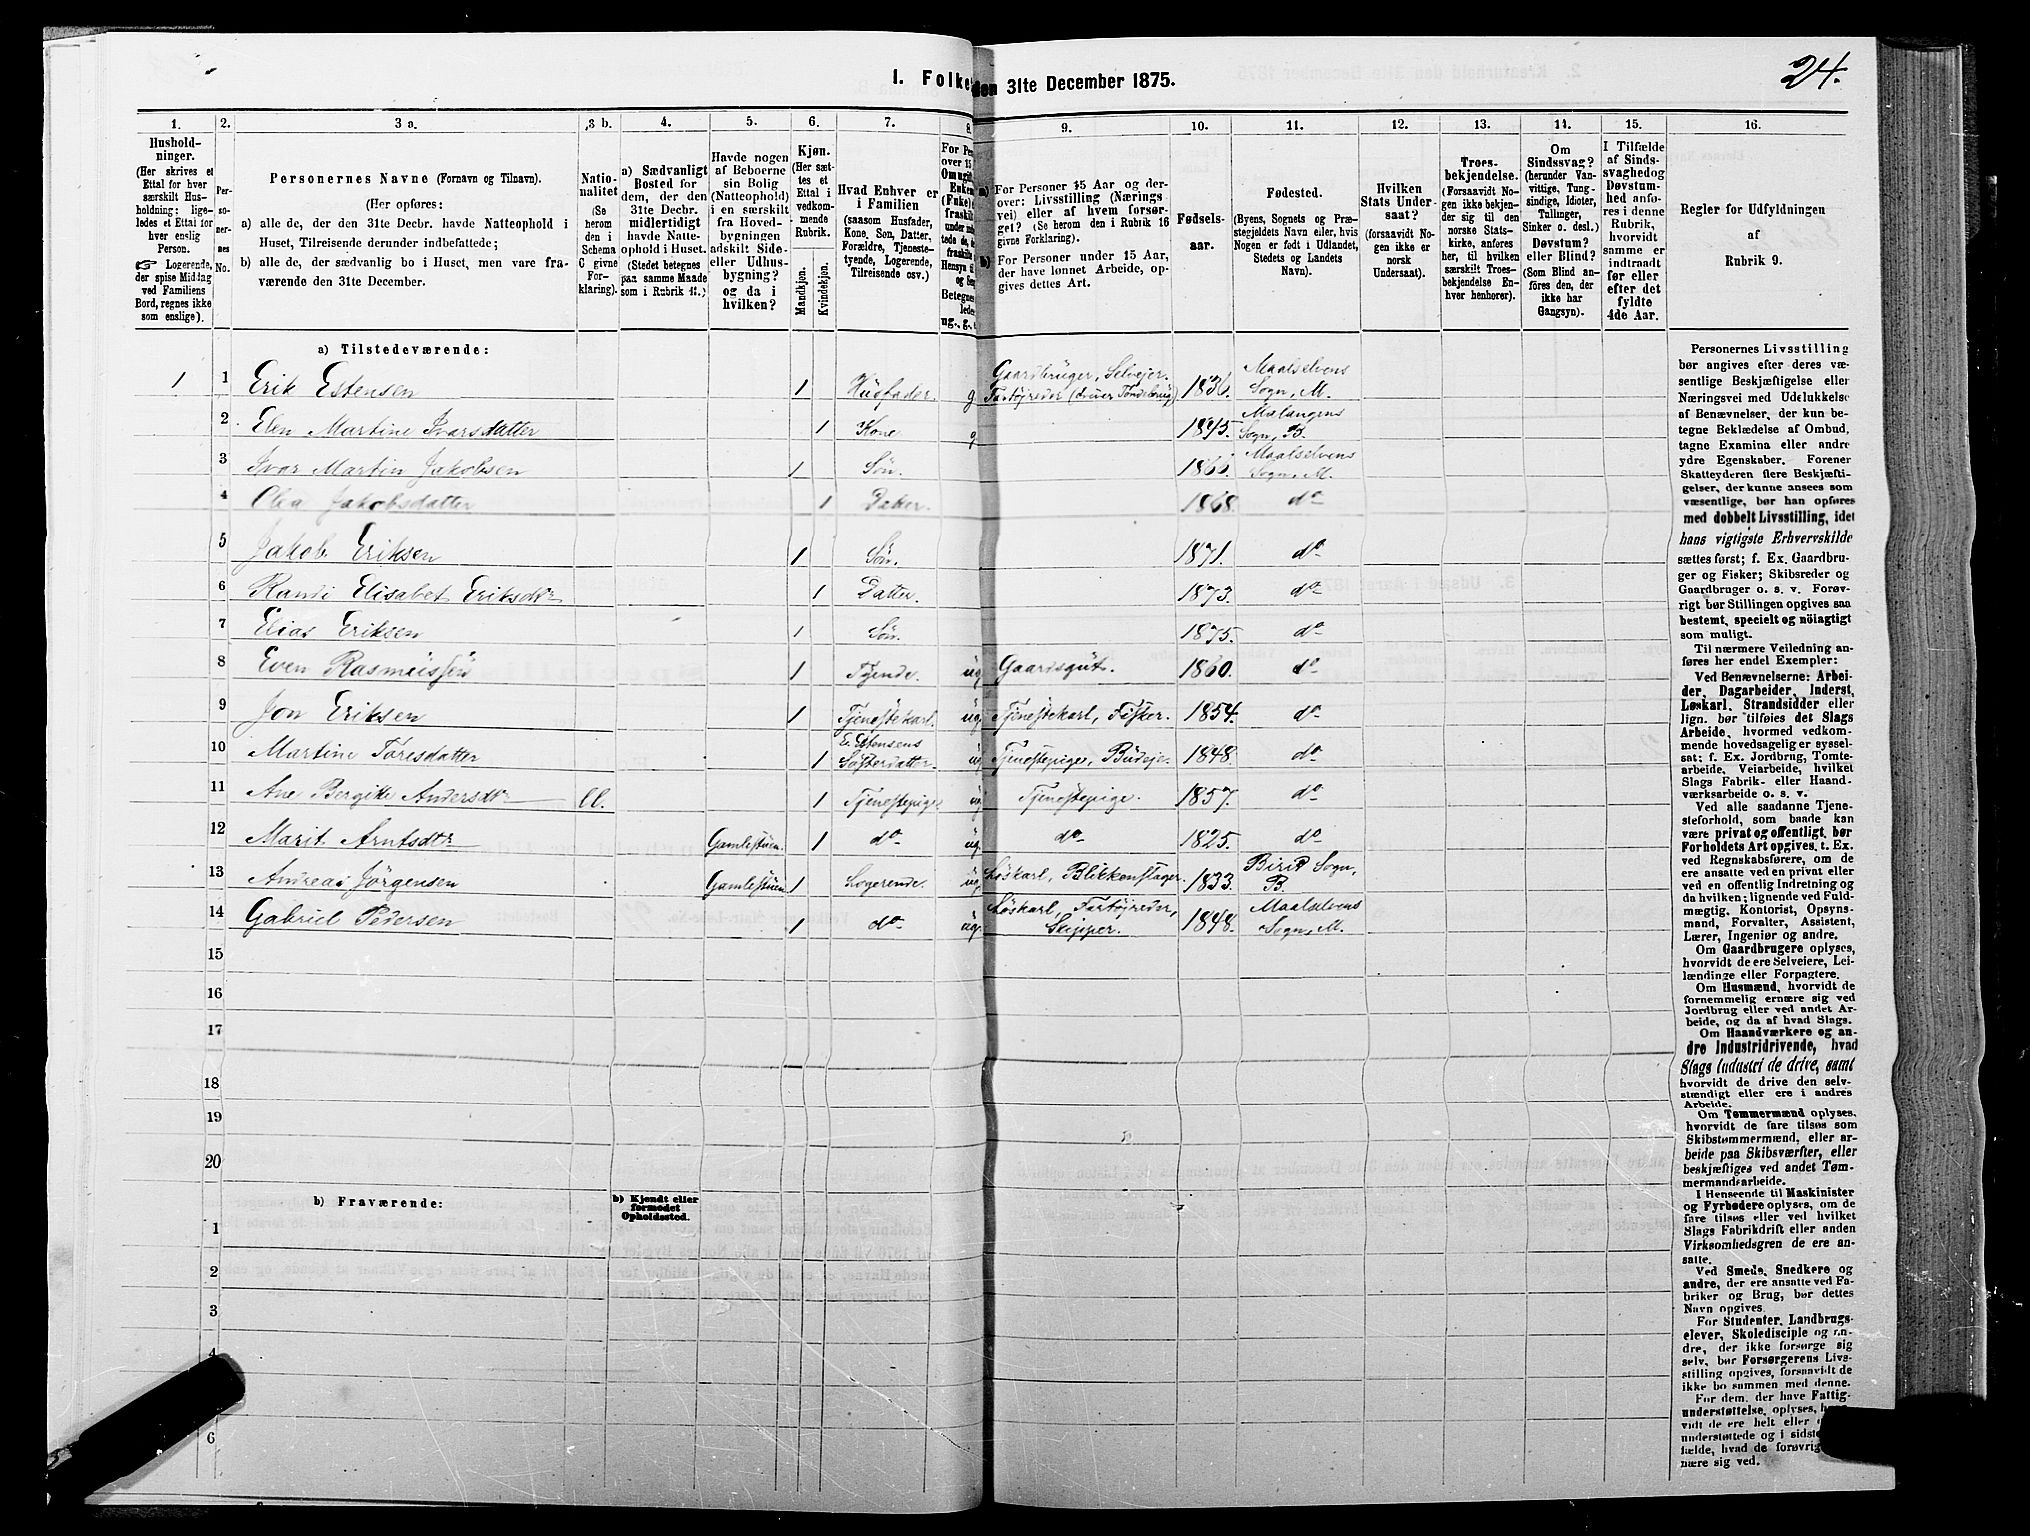 24.
I. Folke
den 31te December 1875.
1. 2. 3 a. 3 b. 4. 5. 6. 7. 8. 9. 10. 11. 12. 13. 14. 15. 16.
Hushold-
ninger.
(Her skrives et
Ettal for hver
særskilt Hus-
holdning; lige-
ledes et Ettal for
hver enslig
Person.
☞ Logerende,
der spise Middag
ved Familiens
Bord, regnes ikke
som enslige).
Per-
so-
ner-
nes
No.
Personernes Navne (Fornavn og Tilnavn).
(Her opføres:
a) alle de, der den 31te Decbr. havde Natteophold i
Huset, Tilreisende derunder indbefattede;
b) alle de, der sædvanlig bo i Huset, men vare fra-
værende den 31te December.
Natio-
nalitet
(Se
herom
den i
Schema
C givne
For-
klaring).
a) Sædvanligt
Bosted for
dem, der den
31te Decbr.
midlertidigt
havde Natte-
ophold i Huset.
(Stedet betegnes
paa samme Maade
som i Rubrik 11.)
Havde nogen
af Beboerne
sin Bolig
(Natteophold)
i en særskilt
fra Hoved-
bygningen
adskilt Side-
eller Udhus-
bygning?
og da i
hvilken?
Kjøn.
(Her sæt-
tes et
Ettal i
vedkom-
mende
Rubrik.
Mandkjøn.
Kvindekjøn.
Hvad Enhver er
i Familien
(saasom Husfader,
Kone, Søn, Datter,
Forældre, Tjeneste-
tyende, Logerende,
Tilreisende osv.)
For Pe
over 15
Om ugift
Enkem
(Fnke)
fraskilt
under
tede de,
fraskilte
Hensyn ti
og
Betegnes
lede
ug., g.,
a) For Personer 15 Aar og der-
over: Livsstilling (Nærings
vei) eller af hvem forsør-
get? (Se herom den i Rubrik 16
givne Forklaring).
b) For Personer under 15 Aar,
der have lønnet Arbeide, op-
gives dettes Art.
Fødsels-
aar.
Fødested.
(Byens, Sognets og Præ-
stegjeldets Navn eller, hvis
Nogen er født i Udlandet,
Stedets og Landets
Navn).
Hvilken
Stats Under-
saat?
(forsaavidt No-
gen ikke er
norsk
Undersaat).
Troes-
bekjendelse.
(Forsaavidt No-
gen ikke bekjen-
der sig til den
norske Stats-
kirke, anføres
her, til hvilken
særskilt Troes-
bekjendelse En-
hver henhorer).
Om
Sindssvag?
(herunder Van-
vittige, Tung-
sindige, Idioter,
Tullinger,
Sinker o. desl.)
Døvstum?
eller Blind?
(Som Blind an-
føres den, der
ikke har
Gangsyn).
I Tilfælde
af Sinds-
svaghed og
Døvstum-
hed anfø-
res i denne
Rubrik,
hvorvidt
samme er
indtraadt
før eller
efter det
fyldte
4de Aar.
Regler for Udfyldningen
af
Rubrik 9.
a) Tilstedeværende:
1 1 Erik Estensen 1 Husfader. g Gaardbruger, Selvejer. Fartøjreder (driver Tøndebrug) 1836. Maalselvens Sogn, M.
2 Elen Martine Ivarsdatter 1 Kone g 1845. Malangens Sogn, B.
3 Ivar Martin Jakobsen 1 Søn. 1866. Maalselvens Sogn, M.
4 Olea Jakobsdatter 1 Datter. 1868. do
5 Jakob Eriksen 1 Søn. 1871. do
6 Randi Elisabet Eriksdtr 1 Datter. 1873. do
7 Elias Eriksen 1 Søn. 1875. do
8 Even Rasmussen 1 Tyende. ug. Gaardsgut. 1860. do
9 Jon Eriksen 1 Tjenestekarl. ug. Tjenestekarl, Fisker. 1854. do
10 Martine Toresdatter 1 E. Estensens Søsterdatter. ug. Tjenestepige, Budeje. 1848. do
11 Ane Bergitte Andersdtr ll. 1 Tjenestepige ug. Tjenestepige. 1857. do
12 Marit Arntsdtr Gamlestuen. 1 do ug. do 1825. do
13 Andreas Jörgensen Gamlestuen 1 Logerende. ug. Löskarl, Blikkenslager. 1833. Birid Sogn, B.
14 Gabriel Pedersen 1 do ug. Löskarl, Fartøjreder, Skipper. 1848. Maalselvens Sogn, M.
15
16
17
18
19
20
b) Fraværende:
b) Kjendt eller
formodet
Opholdssted.
1
2
3
4
6
Personernes Livsstilling
bør angives efter deres væ-
sentlige Beskjæftigelse eller
Næringsvei med Udelukkelse
af Benævnelser, der kun be-
tegne Beklædelse af Ombud,
tagne Examina eller andre
ydre Egenskaber. Forener
Skatteyderen flere Beskjæfti-
gelser, der kunne ansees som
væsentlige, bør han opføres
med dobbelt Livsstilling, idet
hans vigtigste Erhvervskilde
sættes først; f. Ex. Gaardbru-
ger og Fisker; Skibsreder og
Gaardbruger o. s. v. Forøv-
rigt bør Stillingen opgives saa
bestemt, specielt og nöiagtigt
som muligt.
Til nærmere Veiledning an-
føres her endel Exempler:
Ved Benævnelserne: Arbei-
der, Dagarbeider, Inderst,
Løskarl, Strandsidder eller
lign. bør tilføies det Slags
Arbeide, hvormed vedkom-
mende hovedsagelig er syssel-
sat; f. Ex. Jordbrug, Tomte-
arbeide, Veiarbeide, hvilket
Slags Fabrik- eller Haand-
værksarbeide o. s. v.
Ved alle saadanne Tjene-
steforhold, som baade kan
være privat og offentligt, bør
Forholdets Art opgives. t. Ex.
ved Regnskabsførere, om de
ere ansatte ved en privat eller
ved en offentlig Indretning og
da hvilken; lignende ved Fuld-
mægtig, Kontorist, Opsyns-
mand, Forvalter, Assistent,
Lærer, Ingeniør og andre.
Om Gaardbrugere oplyses,
hvorvidt de ere Selveiere, Lei-
lændinge eller Forpagtere.
Om Husmænd, hvorvidt de
fornemmelig ernære sig ved
Jordbrug eller ved andet Ar-
beide, og da af hvad Slags.
Om Haandværkere og an-
dre Industridrivende, hvad
Slags Industri de drive, samt
hvorvidt de drive den selv-
stændigt eller ere i andres
Arbeide.
Om Tømmermænd oplyses,
hvorvidt de fare tilsøs som
Skibstømmermænd, eller ar-
beide paa Skibsværfter, eller
beskjæftiges ved andet Tøm-
mermandsarbeide.
I Henseende til Maskinister
og Fyrbødere oplyses, om de
fare tilsøs eller ved hvilket
Slags Fabrikdrift eller anden
Virksomhedsgren de ere an-
satte.
Ved Smede, Snedkere og
andre, der ere ansatte ved Fa-
briker og Brug, bør dettes
Navn opgives.
For Studenter, Landbrugs-
elever, Skoledisciple og an-
dre, der ikke forsørge sig
selv, bør Forsørgerens Livs-
stilling opgives, forsaavidt de
ikke bo sammen med denne.
For dem, der have Fattig-
understøttelse, oplyses,
vidt de ere helt eller
understøttede og i sidste
fælde, hvad de forøvrig
nære sig ved.